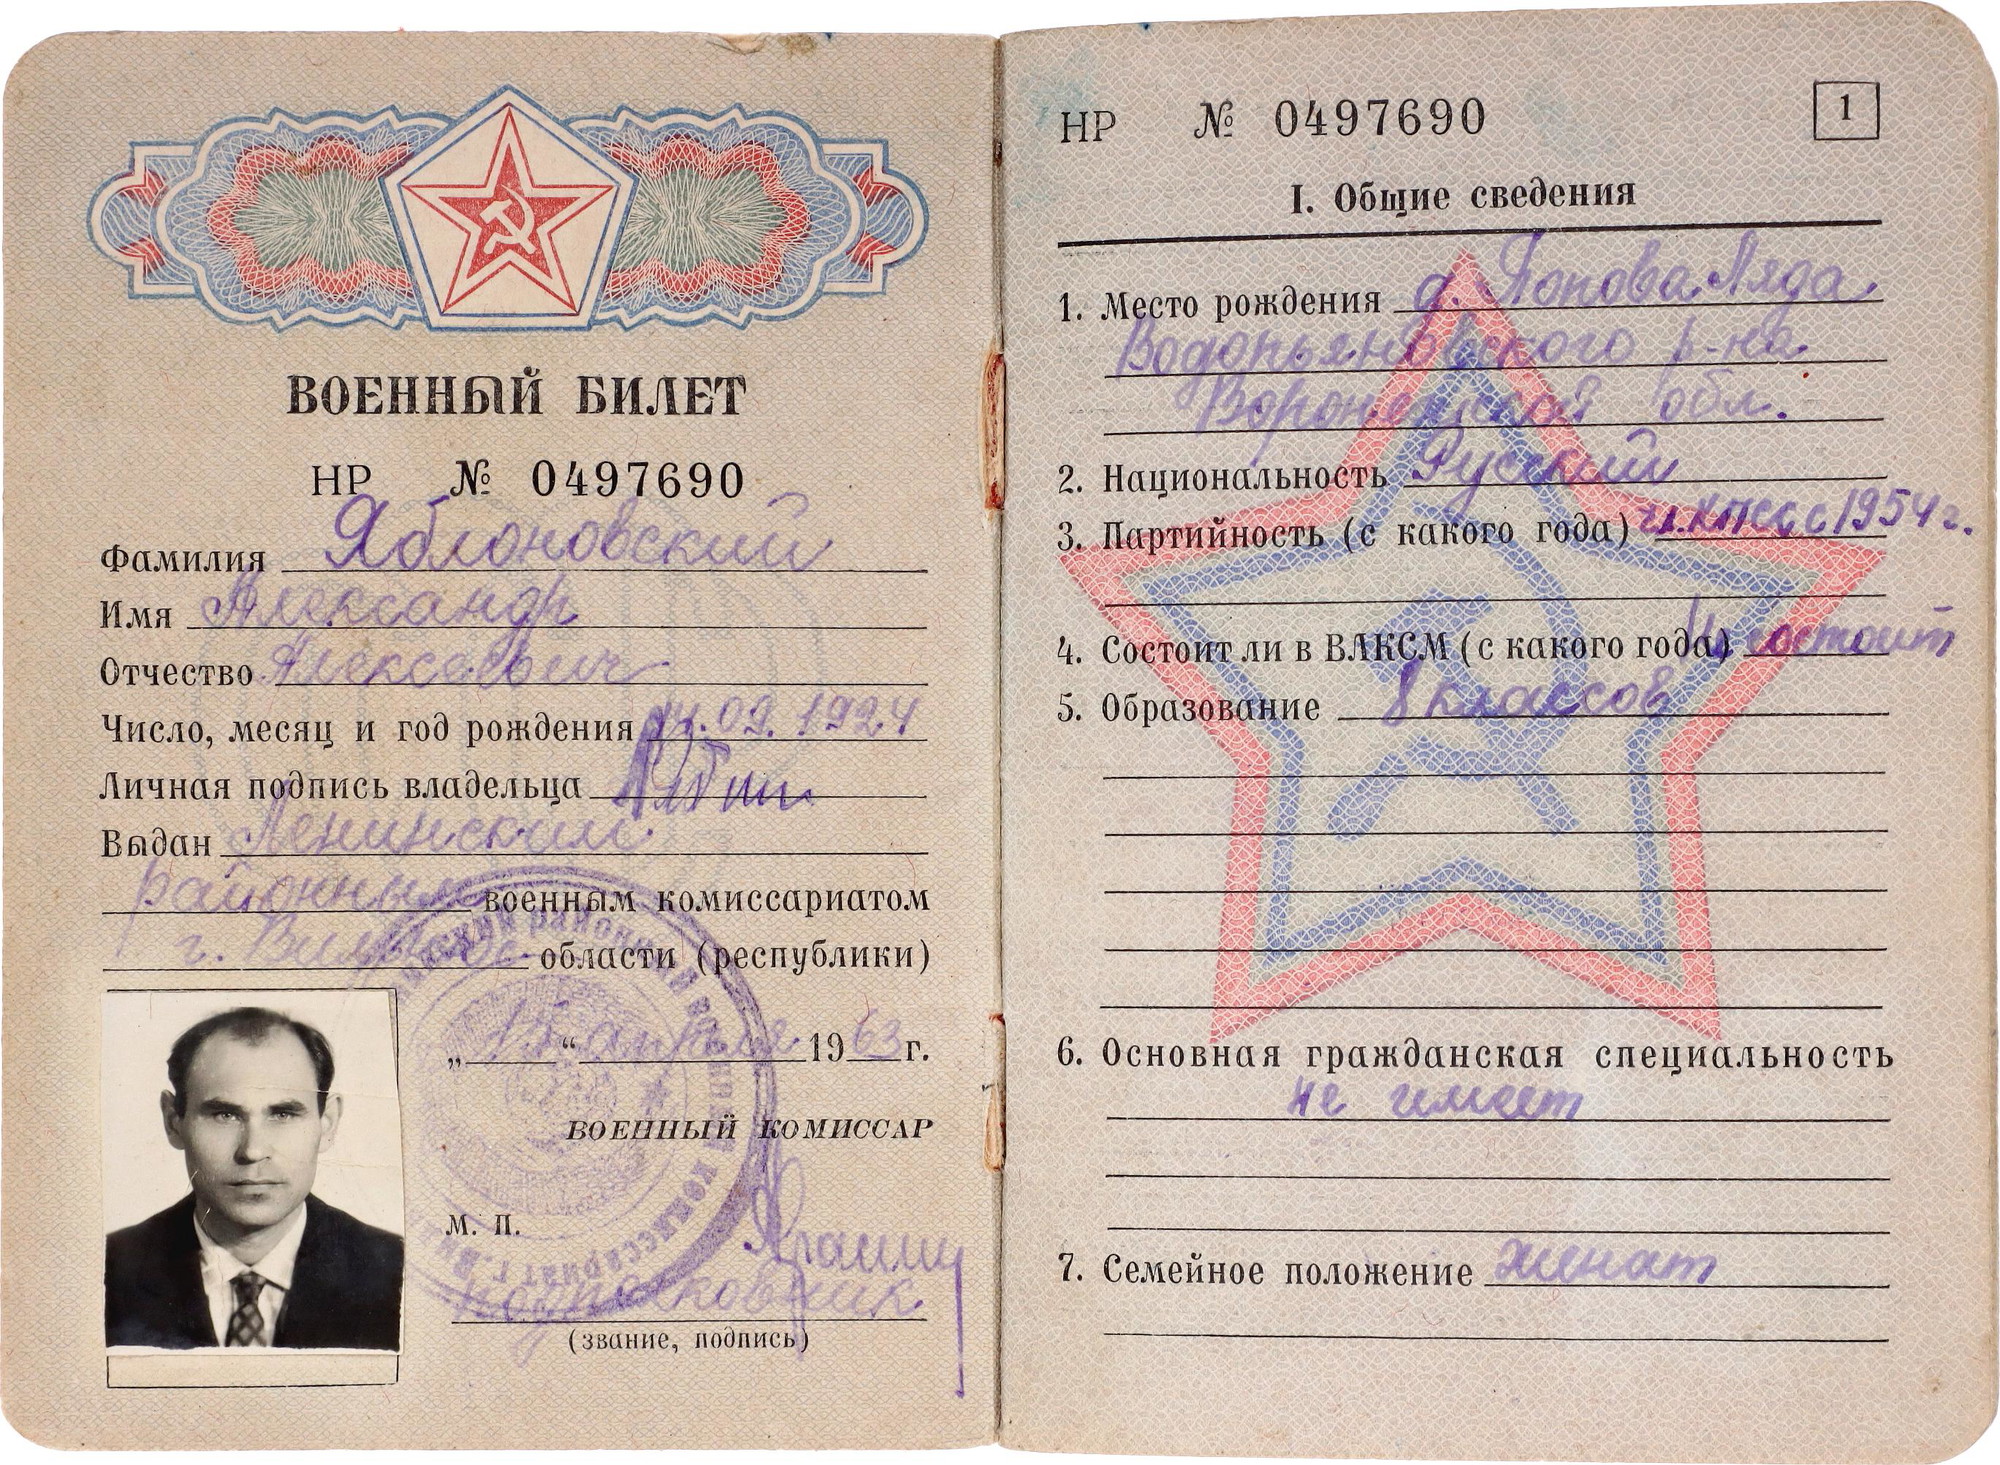 ВОЕННЫЙ БИЛЕТ
НР № 0497690
Фамилия Яблоновский
Имя Александр
Отчество Алексеевич
Число, месяц и год рождения 14.09.1924
Личная подпись владельца
Выдан Ленинским
районным военным комиссариатом
г. Вильнюс области (республики)
„15“ апреля 1963 г.
ВОЕННЫЙ КОМИССАР
М. П.
подполковник
(звание, подпись)
НР № 0497690
1
I. Общие сведения
1. Место рождения д. Попова Ляда
Водопьяновского р-на
Воронежской обл.
2. Национальность Русский
3. Партийность (с какого года) чл. КПСС с 1954 г.
4. Состоит ли в ВЛКСМ (с какого года) Не состоит
5. Образование 8 классов
6. Основная гражданская специальность
не имеет
7. Семейное положение женат